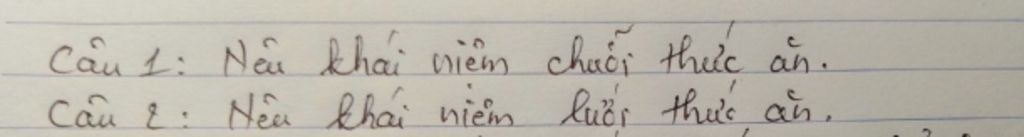 Câu 1: Nêu khái niệm chuỗi thức ăn.
Câu 2: Nêu khái niệm lưới thức ăn.